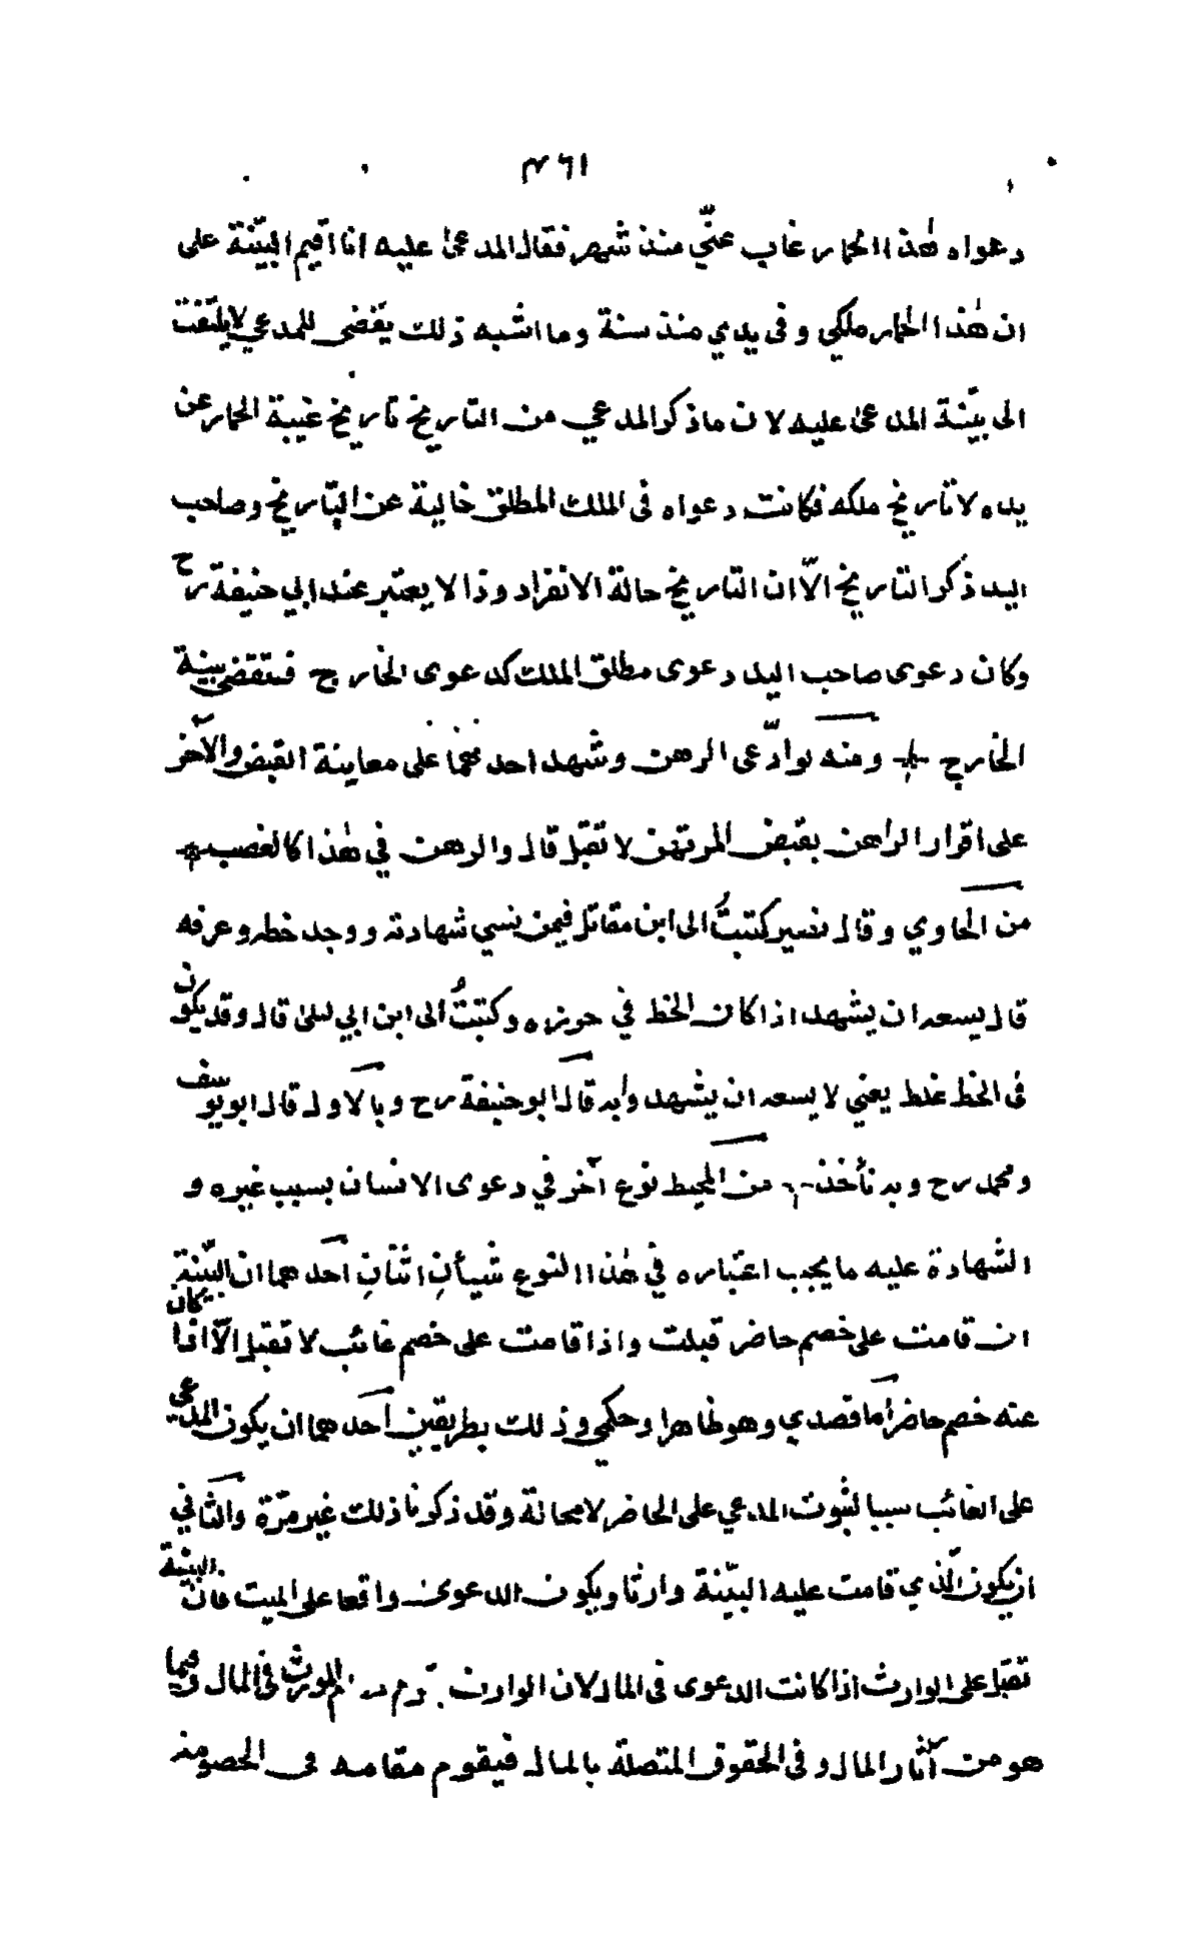 ٤٦١
دعواه هٰذا الحمار غاب عنّي منذ شهر فقال المدعىٰ عليه انا اقيم البيّنة على
ان هٰذا الحمار ملكي وفى يدي منذ سنة وما اشبه ذلك يقضى للمدعي لا يلتفت
الى بيّنة المدعىٰ عليه لان ما ذكر المدعي من التاريخ تاريخ غيبة الحمار عن
يده لا تاريخ ملكه فكانت دعواه فى الملك المطلق خالية عن التاريخ وصاحب
اليد ذكر التاريخ الّا ان التاريخ حالة الانفراد وذا لا يعتبر عند ابي حنيفة رح
وكان دعوى صاحب اليد دعوى مطلق الملك كدعوى الخارج فتقضى بينة
الخارج ومنه لو ادّعى الرهن وشهد احدهما على معاينة القبض والآخر
على اقرار الراهن بقبض المرتهن لا تقبل قال والرهن في هٰذا كالغصب
من الحاوي وقال نصير كتبتُ الى ابن مقاتل فيمن نسي شهادته ووجد خطه وعرفه
قال يسعه ان يشهد اذا كان الخط في حرزه وكتبتُ الى ابن ابي ليلىٰ قال وقد يكون
فى الخط غلط يعني لا يسعه ان يشهد وبه قال ابو حنيفة رح وبالاول قال ابو يوسف
ومحمد رح وبه نأخذ من المحيط نوع آخر في دعوى الانسان بسبب غيره و
الشهادة عليه ما يجب اعتباره في هٰذا النوع شيأنِ اثنانِ احدهما ان البيّنة
ان قامت على خصم حاضر قبلت واذا قامت على خصم غائب لا تقبل الّا اذا كان
عنه خصم حاضر اما قصدي وهو ظاهر او حكمي وذلك بطريقين احدهما ان يكون المدعي
على الغائب سببا لثبوت المدعي على الحاضر لا محالة وقد ذكرنا ذلك غير مرّة والثاني
ان يكون الّذي قامت عليه البيّنة وارثا ويكون الدعوىٰ واقعا على الميت فان البينة
تقبل على الوارث اذا كانت الدعوى فى المال لان الوارث المورث فى المال وفيما
هو من آثار المال وفى الحقوق المتصلة بالمال فيقوم مقامه فى الخصومة